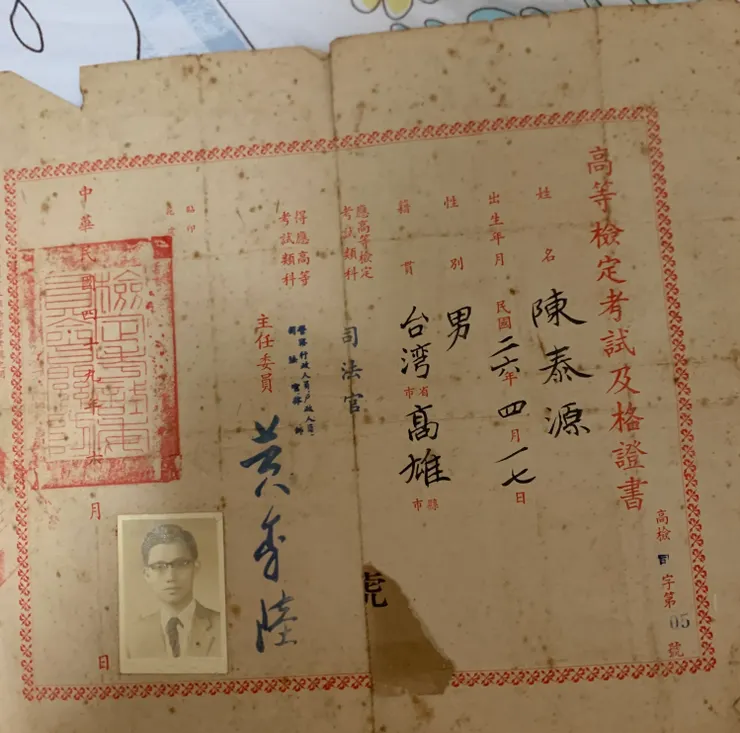 高等檢定考試及格證書
高檢 字第05號
姓名 陳泰源
出生年月 民國二六年四月一七日
性別 男
籍貫 台湾省市高雄縣市
應高等檢定考試類科 司法官
得應高等考試類科
主任委員 黃季陸
中華民國四十九年 月 日